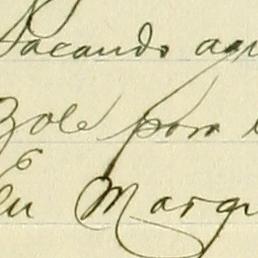 Sacando agu
Zole para
En Margu